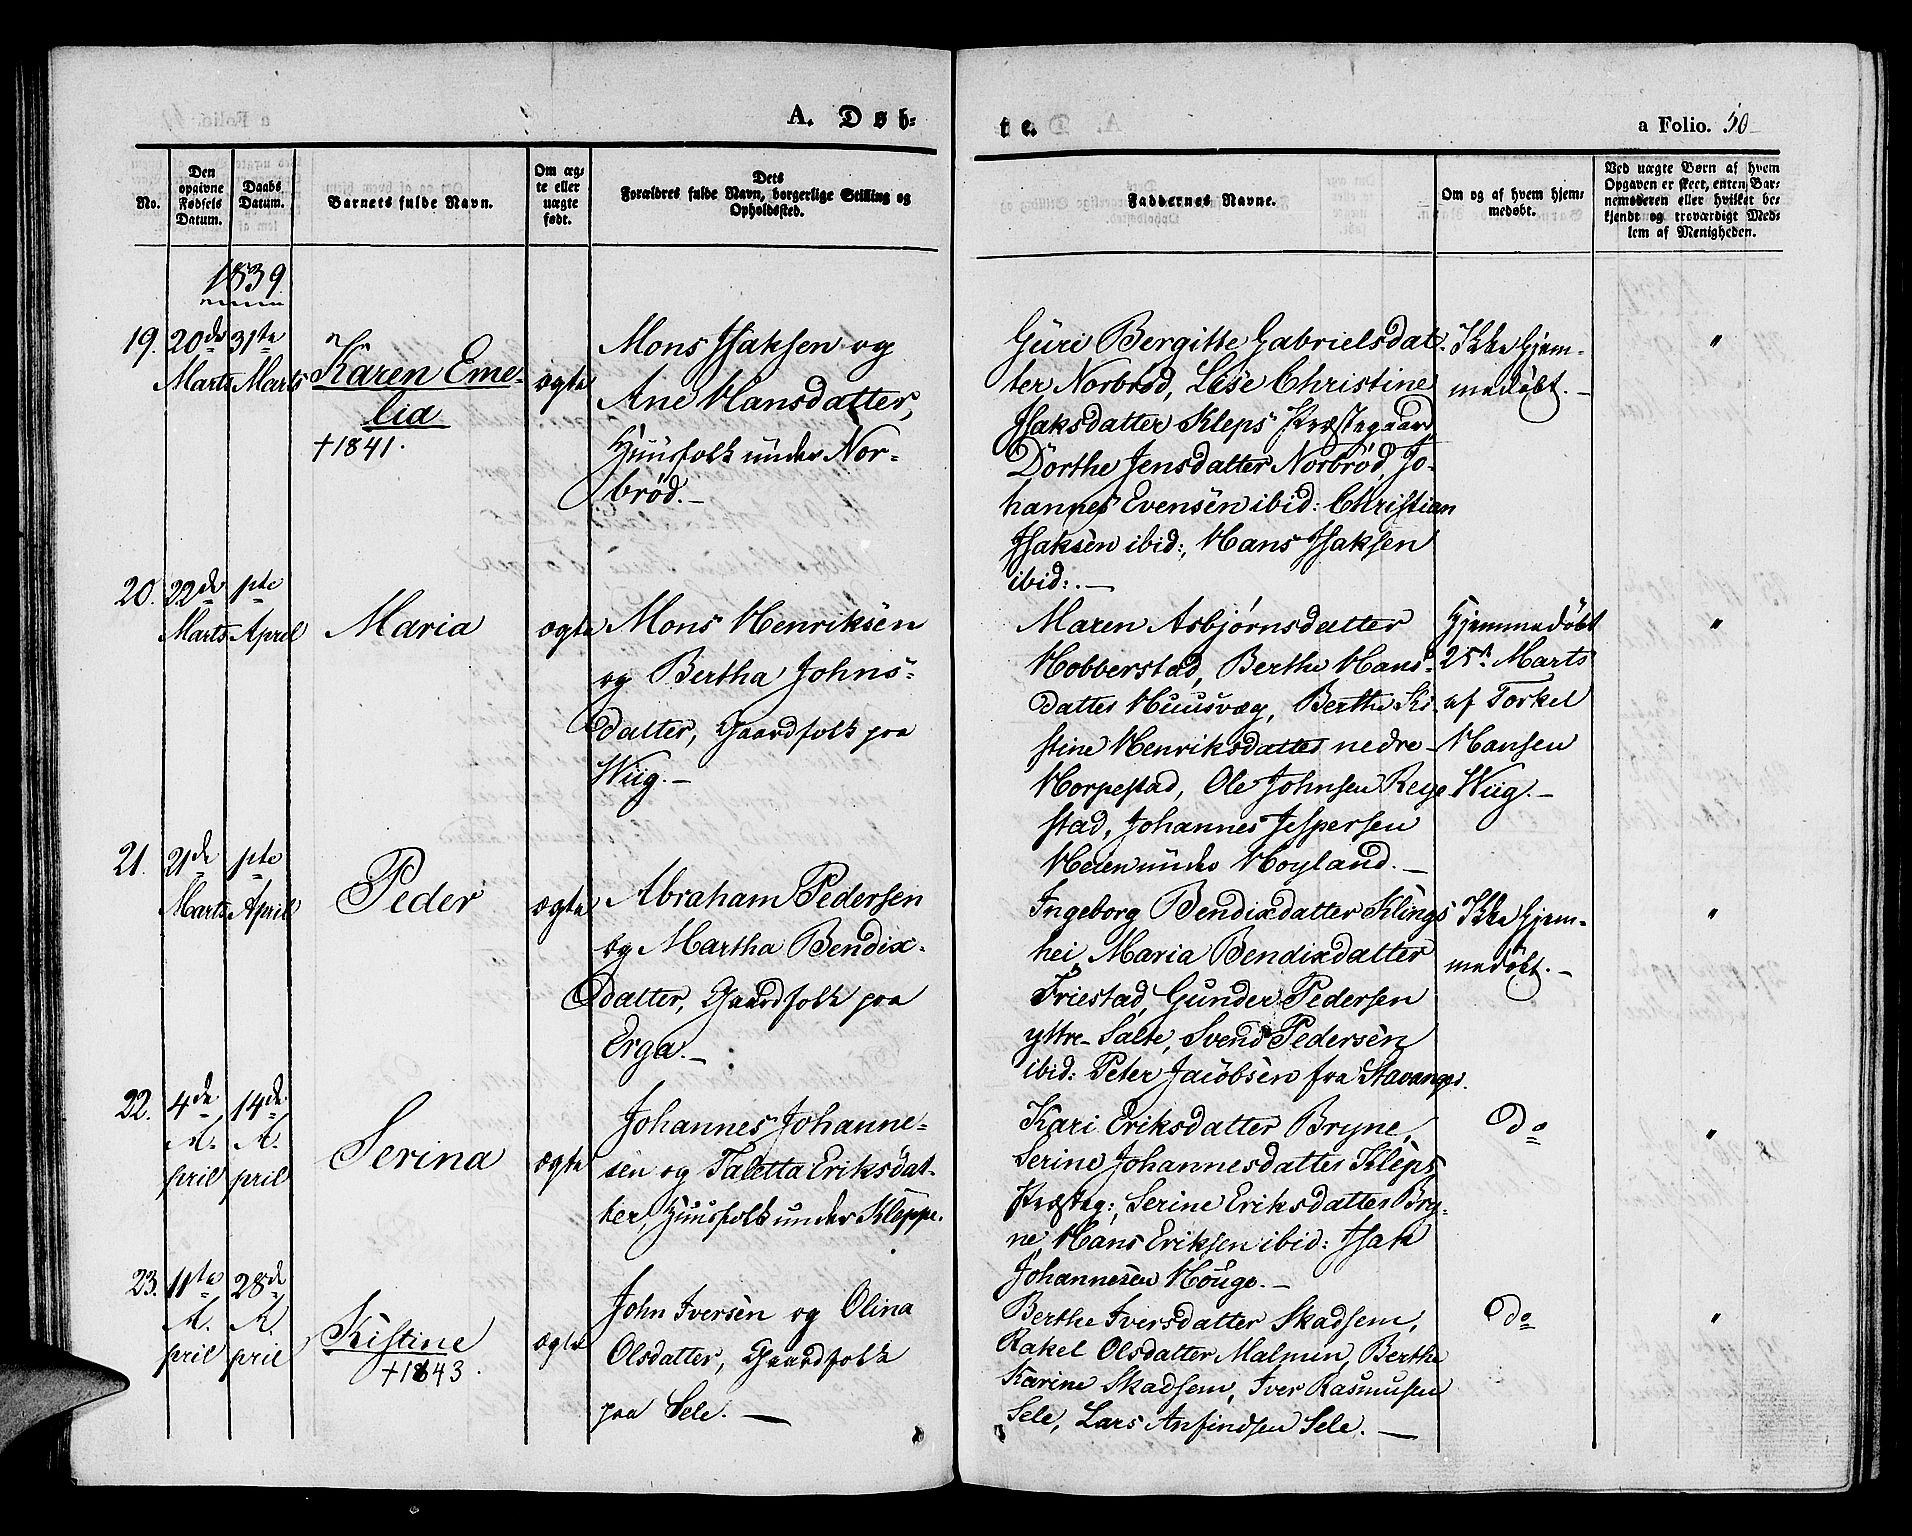 A. Døb-
te.
a Folio. 50
No.
Den
opgivne
Fødsels
Datum.
Daabs
Datum.
Barnets fulde Navn.
Om æg-
te eller
uægte
født.
Dets
Forældres fulde Navn, borgerlige Stilling og
Opholdssted.
Faddernes Navne.
Om og af hvem hjem-
medøbt.
Ved uægte Børn af hvem
Opgaven er skeet, enten Bar-
nemoderen eller hvilket be-
kjendt og troværdigt Med-
lem af Menigheden.
1839
19.
20de
Marts
31te
Marts
Karen Eme-
lia
†1841.
ægte
Mons Isaksen og
Ane Hansdatter,
Huusfolk under Nor-
brød.-
Guri Bergitte Gabrielsdat-
ter Norbrød, Lise Christine
Isaksdatter Kleps Præstegaard
Dorthe Jensdatter Norbrød, Jo-
hannes Evensen ibid: Christian
Isaksen ibid:, Hans Isaksen
ibid:.-
Ikke hjem-
medøbt.-
"
20.
22de
Marts
1ste
April
Maria
ægte
Mons Henriksen
og Bertha Johns-
datter, Gaardfolk paa
Wiig.-
Maren Asbjørnsdatter
Hobberstad, Berthe Hans-
datter Huusvæg, Berthe Ki-
stine Henriksdatter nedre-
Horpestad, Ole Johnsen Rege
stad, Johannes Jespersen
Heien under Hoyland.-
Hjemmedøbt
25de Marts
af Torkel
Hansen
Wiig.-
"
21.
21de
Marts
1ste
April
Peder
ægte
Abraham Pedersen
og Martha Bendix-
datter, Gaardfolk paa
Erga.-
Ingeborg Bendixdatter Klings
hei, Maria Bendixdatter
Friestad, Gunder Pedersen
yttre-Salte, Svend Pedersen
ibid: Peter Jacobsen fra Stavanger.
Ikke hjem-
medøbt.-
"
22.
4de
A-
pril
14de
A-
pril
Serina
ægte
Johannes Johanne-
sen og Taletta Eriksdat-
ter, Huusfolk under Kleppe.
Kari Eriksdatter Bryne,
Serine Johannesdatter Kleps
Præsteg:, Serine Eriksdatter Bry-
ne, Hans Eriksen ibid: Isak
Johannesen Houge.-
Do
"
23.
11te
A-
pril
28de
A-
pril
Kistine
†1843.
ægte
John Iversen og Olina
Olsdatter, Gaardfolk
paa Sele.-
Berthe Iversdatter Skadsem,
Rakel Olsdatter Malmin, Berthe
Karine Skadsem, Iver Rasmusen
Sele, Lars Anfindsen Sele.-
Do
"